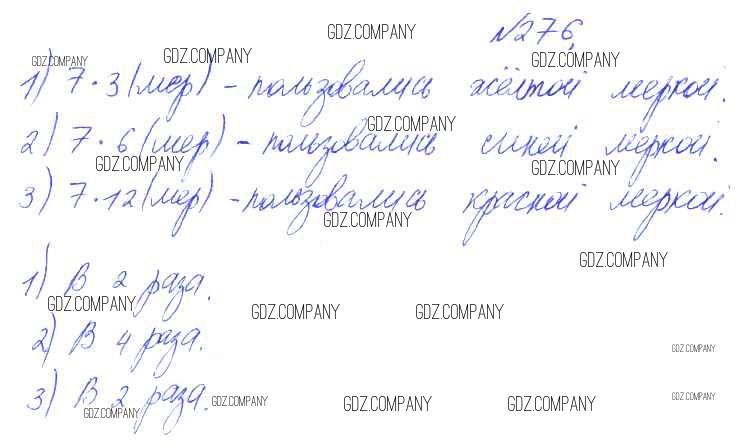 GDZ.COMPANY №276
GDZ.COMPANY GDZ.COMPANY GDZ.COMPANY
1) 7·3(мер) - пользовались жёлтой меркой.
GDZ.COMPANY
2) 7·6(мер) - пользовались синей меркой.
GDZ.COMPANY GDZ.COMPANY
3) 7·12(мер) - пользовались красной меркой.
GDZ.COMPANY
GDZ.COMPANY
1) В 2 раза.
GDZ.COMPANY GDZ.COMPANY GDZ.COMPANY
2) В 4 раза.
GDZ.COMPANY
3) В 2 раза.
GDZ.COMPANY GDZ.COMPANY GDZ.COMPANY GDZ.COMPANY GDZ.COMPANY